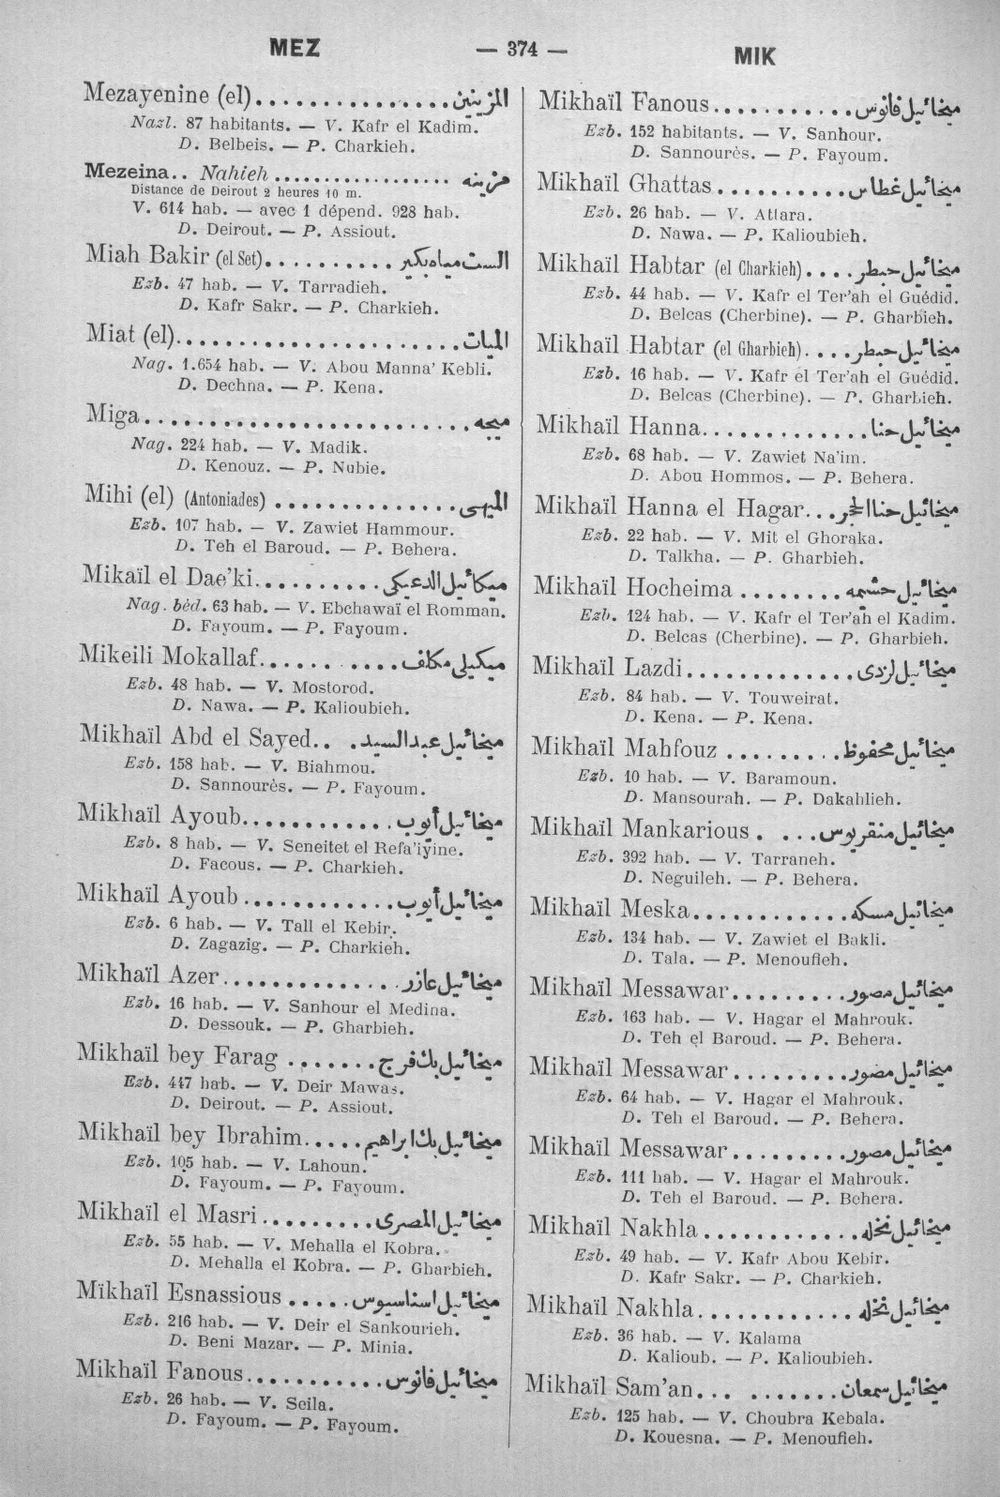 MEZ
— 374 —
MIK
Mezayenine (el)............... المزينين
Nazl. 87 habitants. — V. Kafr el Kadim.
D. Belbeis. — P. Charkieh.
Mezeina.. Nahieh .................. مزينه
Distance de Deirout 2 heures 10 m.
V. 614 hab. — avec 1 dépend. 928 hab.
D. Deirout. — P. Assiout.
Miah Bakir (el Set).......... الست مياه بكير
Ezb. 47 hab. — V. Tarradieh.
D. Kafr Sakr. — P. Charkieh.
Miat (el)...................... الميات
Nag. 1.654 hab. — V. Abou Manna' Kebli.
D. Dechna. — P. Kena.
Miga........................ ميجه
Nag. 224 hab. — V. Madik.
D. Kenouz. — P. Nubie.
Mihi (el) (Antoniades) .............. الميهى
Ezb. 107 hab. — V. Zawiet Hammour.
D. Teh el Baroud. — P. Behera.
Mikaïl el Dae'ki.......... ميكائيل الدعيكى
Nag. béd. 63 hab. — V. Ebchawaï el Romman.
D. Fayoum. — P. Fayoum.
Mikeili Mokallaf...... ..... ميكيلى مكلف
Ezb. 48 hab. — V. Mostorod.
D. Nawa. — P. Kalioubieh.
Mikhaïl Abd el Sayed.. . ميخائيل عبد السيد
Ezb. 158 hab. — V. Biahmou.
D. Sannourès. — P. Fayoum.
Mikhaïl Ayoub............ ميخائيل أيوب
Ezb. 8 hab. — V. Seneitet el Refa'iyine.
D. Facous. — P. Charkieh.
Mikhaïl Ayoub............ ميخائيل أيوب
Ezb. 6 hab. — V. Tall el Kebir.
D. Zagazig. — P. Charkieh.
Mikhaïl Azer.............. ميخائيل عازر
Ezb. 16 hab. — V. Sanhour el Medina.
D. Dessouk. — P. Gharbieh.
Mikhaïl bey Farag ....... ميخائيل بك فرج
Ezb. 447 hab. — V. Deir Mawas.
D. Deirout. — P. Assiout.
Mikhaïl bey Ibrahim..... ميخائيل بك ابراهيم
Ezb. 105 hab. — V. Lahoun.
D. Fayoum. — P. Fayoum.
Mikhaïl el Masri......... ميخائيل المصرى
Ezb. 55 hab. — V. Mehalla el Kobra.
D. Mehalla el Kobra. — P. Gharbieh.
Mikhaïl Esnassious ..... ميخائيل اسناسيوس
Ezb. 216 hab. — V. Deir el Sankourieh.
D. Beni Mazar. — P. Minia.
Mikhaïl Fanous........... ميخائيل فانوس
Ezb. 26 hab. — V. Seila.
D. Fayoum. — P. Fayoum.
Mikhaïl Fanous........... ميخائيل فانوس
Ezb. 152 habitants. — V. Sanhour.
D. Sannourès. — P. Fayoum.
Mikhaïl Ghattas .......... ميخائيل غطاس
Ezb. 26 hab. — V. Attara.
D. Nawa. — P. Kalioubieh.
Mikhaïl Habtar (el Charkieh) .... ميخائيل حبطر
Ezb. 44 hab. — V. Kafr el Ter'ah el Guédid.
D. Belcas (Cherbine). — P. Gharbieh.
Mikhaïl Habtar (el Gharbieh). ... ميخائيل حبطر
Ezb. 16 hab. — V. Kafr el Ter'ah el Guédid.
D. Belcas (Cherbine). — P. Gharbieh.
Mikhaïl Hanna............. ميخائيل حنا
Ezb. 68 hab. — V. Zawiet Na'im.
D. Abou Hommos. — P. Behera.
Mikhaïl Hanna el Hagar... ميخائيل حنا الحجر
Ezb. 22 hab. — V. Mit el Ghoraka.
D. Talkha. — P. Gharbieh.
Mikhaïl Hocheima ........ ميخائيل حشيمه
Ezb. 124 hab. — V. Kafr el Ter'ah el Kadim.
D. Belcas (Cherbine). — P. Gharbieh.
Mikhaïl Lazdi............. ميخائيل لزدى
Ezb. 84 hab. — V. Touweirat.
D. Kena. — P. Kena.
Mikhaïl Mahfouz ......... ميخائيل محفوظ
Ezb. 10 hab. — V. Baramoun.
D. Mansourah. — P. Dakahlieh.
Mikhaïl Mankarious . ... ميخائيل منقريوس
Ezb. 392 hab. — V. Tarraneh.
D. Neguileh. — P. Behera.
Mikhaïl Meska............ ميخائيل مسكه
Ezb. 134 hab. — V. Zawiet el Bakli.
D. Tala. — P. Menoufieh.
Mikhaïl Messawar......... ميخائيل مصور
Ezb. 163 hab. — V. Hagar el Mahrouk.
D. Teh el Baroud. — P. Behera.
Mikhaïl Messawar......... ميخائيل مصور
Ezb. 64 hab. — V. Hagar el Mahrouk.
D. Teh el Baroud. — P. Behera.
Mikhaïl Messawar......... ميخائيل مصور
Ezb. 111 hab. — V. Hagar el Mahrouk.
D. Teh el Baroud. — P. Behera.
Mikhaïl Nakhla ............ ميخائيل نخله
Ezb. 49 hab. — V. Kafr Abou Kebir.
D. Kafr Sakr. — P. Charkieh.
Mikhaïl Nakhla............ ميخائيل نخله
Ezb. 36 hab. — V. Kalama
D. Kalioub. — P. Kalioubieh.
Mikhaïl Sam'an... ....... ميخائيل سمعان
Ezb. 125 hab. — V. Choubra Kebala.
D. Kouesna. — P. Menoufieh.